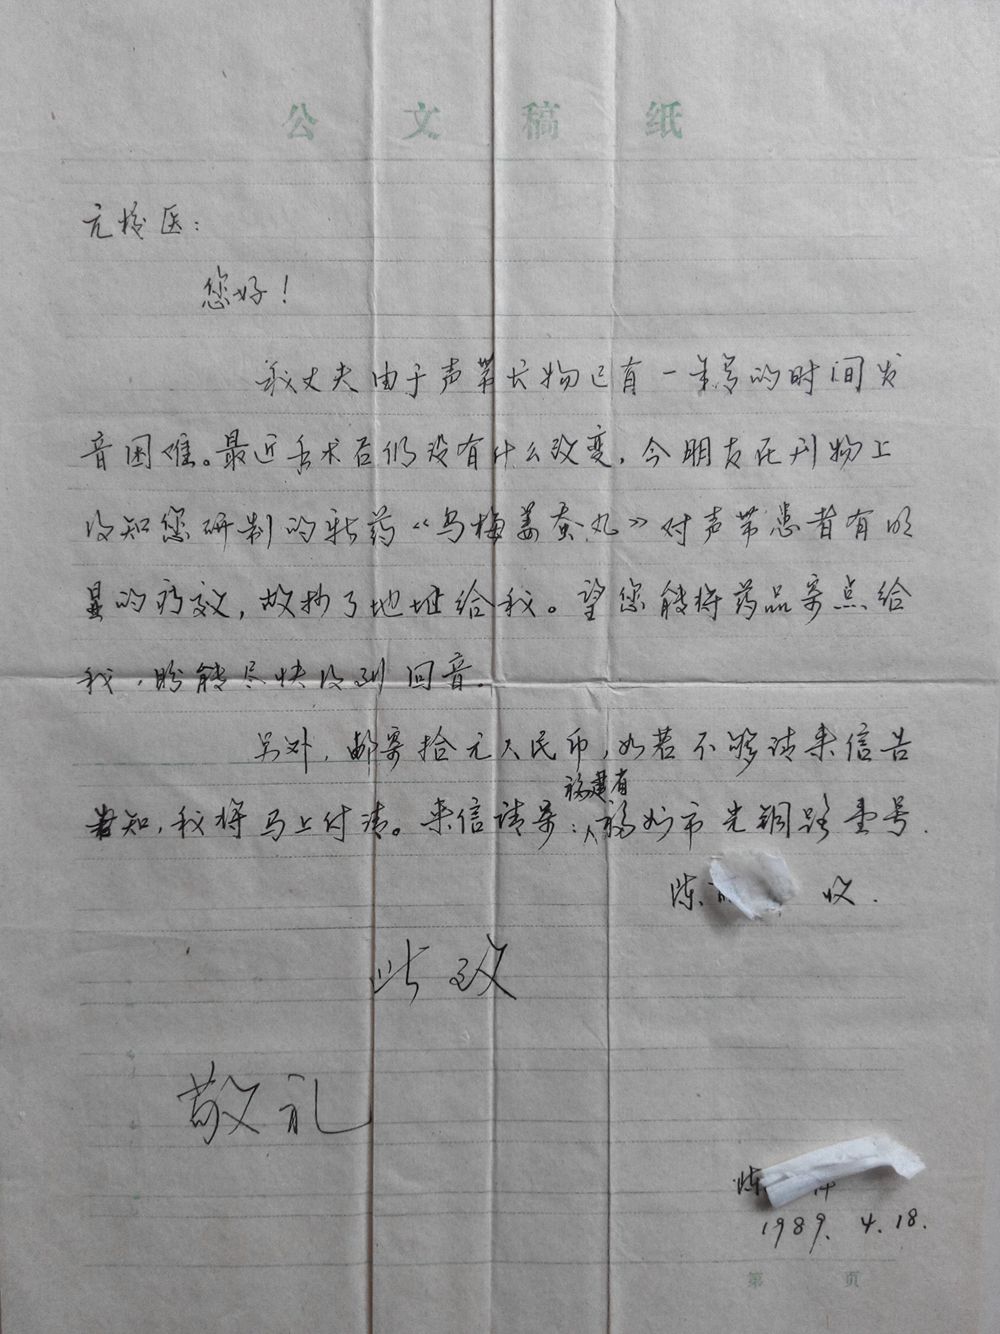 公文稿纸
亢校医：
您好！
我丈夫由于声带长物已有一年多的时间发
音困难。最近手术后仍没有什么改变，今朋友在刊物上
得知您研制的新药《乌梅姜蚕丸》对声带患者有明
显的疗效，故抄了地址给我。望您能将药品寄点给
我，盼能尽快得到回音。
另外，邮寄拾元人民币，如若不够请来信告
知，我将马上付清。来信请寄：福建省福州市光铜路壹号．
陈 收．
此致
敬礼
陈
1989. 4. 18.
第 页